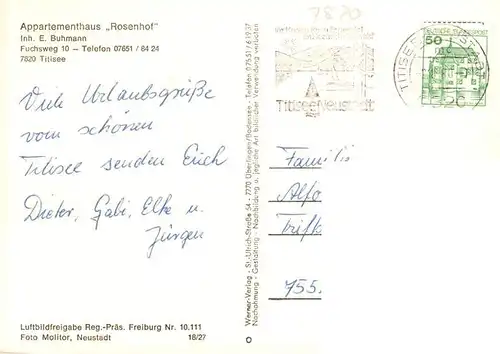 Appartementhaus „Rosenhof"
Inh. E. Buhmann
Fuchsweg 10 — Telefon 07651 / 84 24
7820 Titisee
Viele Urlaubsgrüße
vom schönen
Titisee senden Euch
Dieter, Gabi, Elke u.
Jürgen
Luftbildfreigabe Reg.-Präs. Freiburg Nr. 10.111
Foto Molitor, Neustadt 18/27
Werner-Verlag - St.-Ulrich-Straße 54 - 7770 Überlingen/Bodensee - Telefon 0 75 51 / 6 19 37
Nachahmung - Gestaltung - Nachbildung u. jegliche Art bildlicher Verwendung verboten
7820
Titisee-Neustadt
TITISEE-NEUSTADT
50
Familie
755.